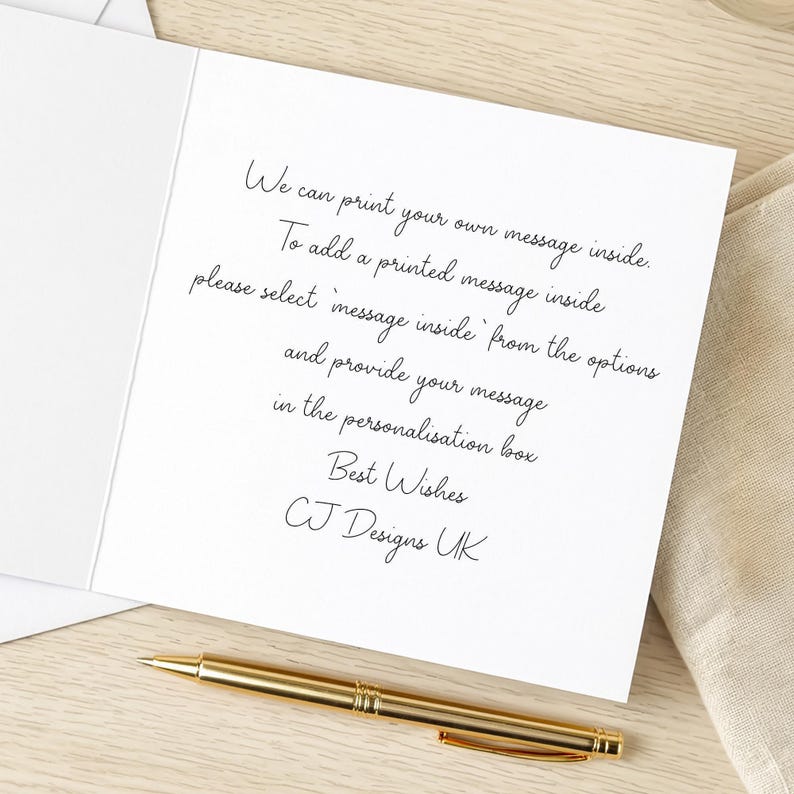 We can print your own message inside.
To add a printed message inside
please select `message inside` from the options
and provide your message
in the personalisation box
Best Wishes
CJ Designs UK